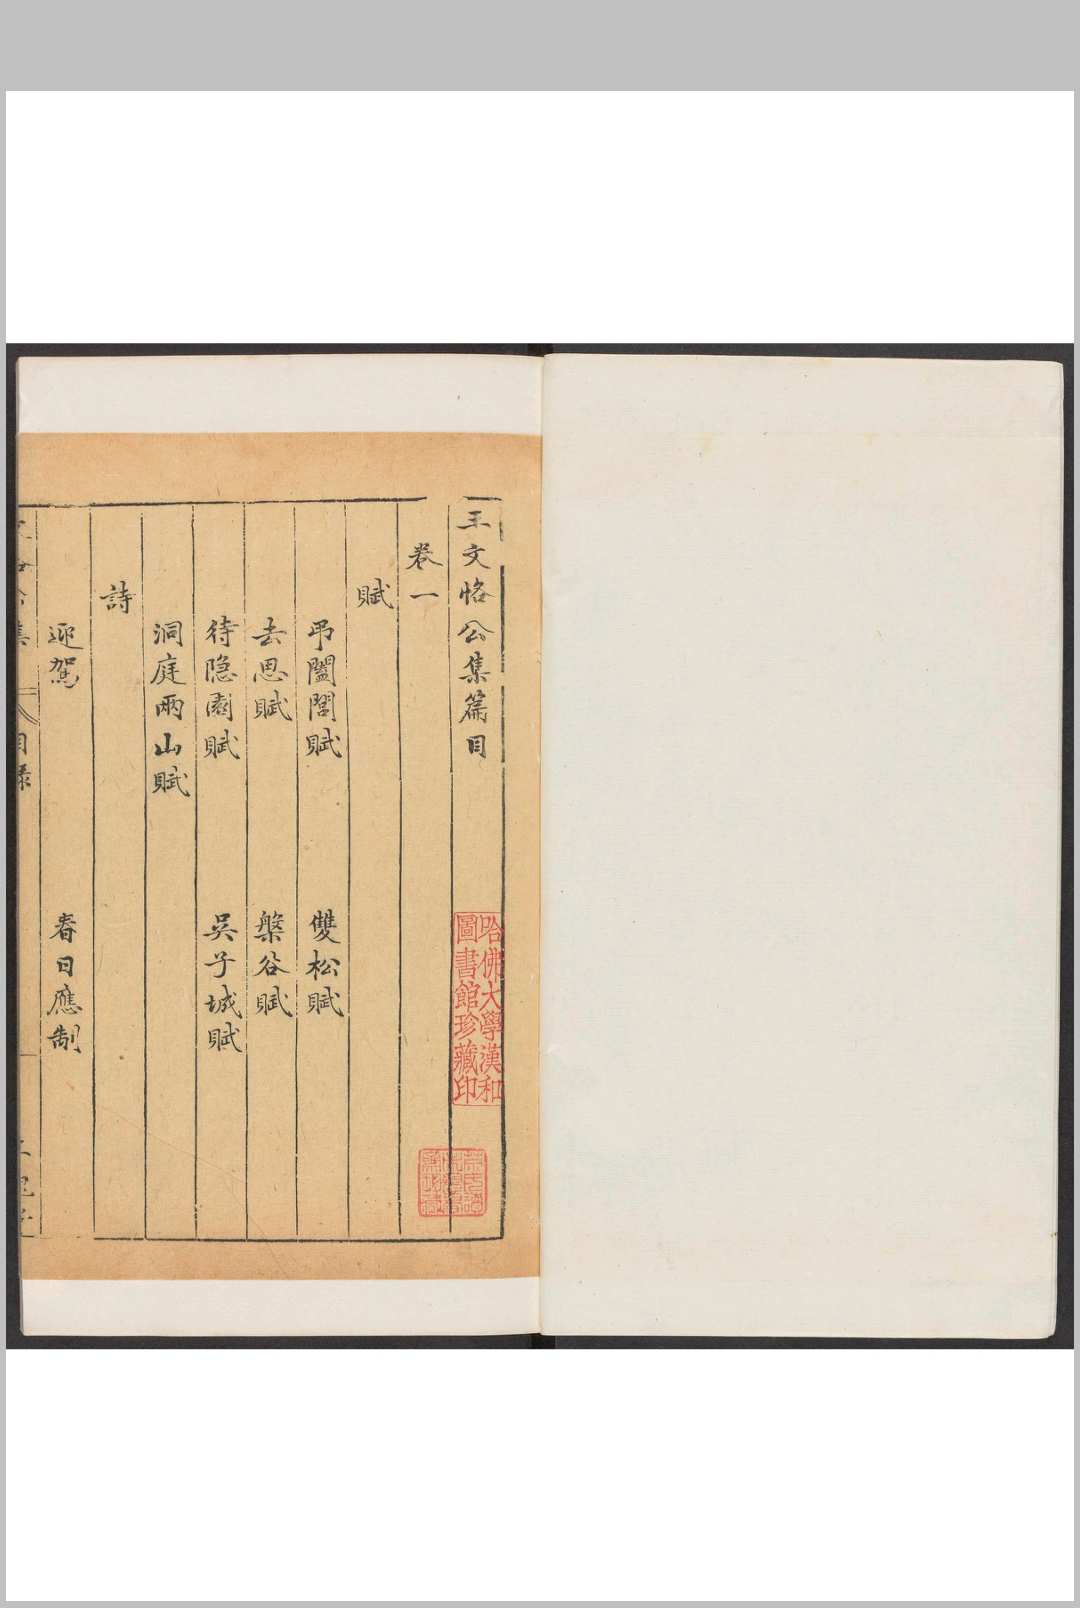 王文恪公集篇目
卷一
賦
弔闔閭賦 雙松賦
去思賦 槃谷賦
待隐園賦 吳子城賦
洞庭兩山賦
詩
迎駕 春日應制
哈佛大學漢和
圖書館珍藏印